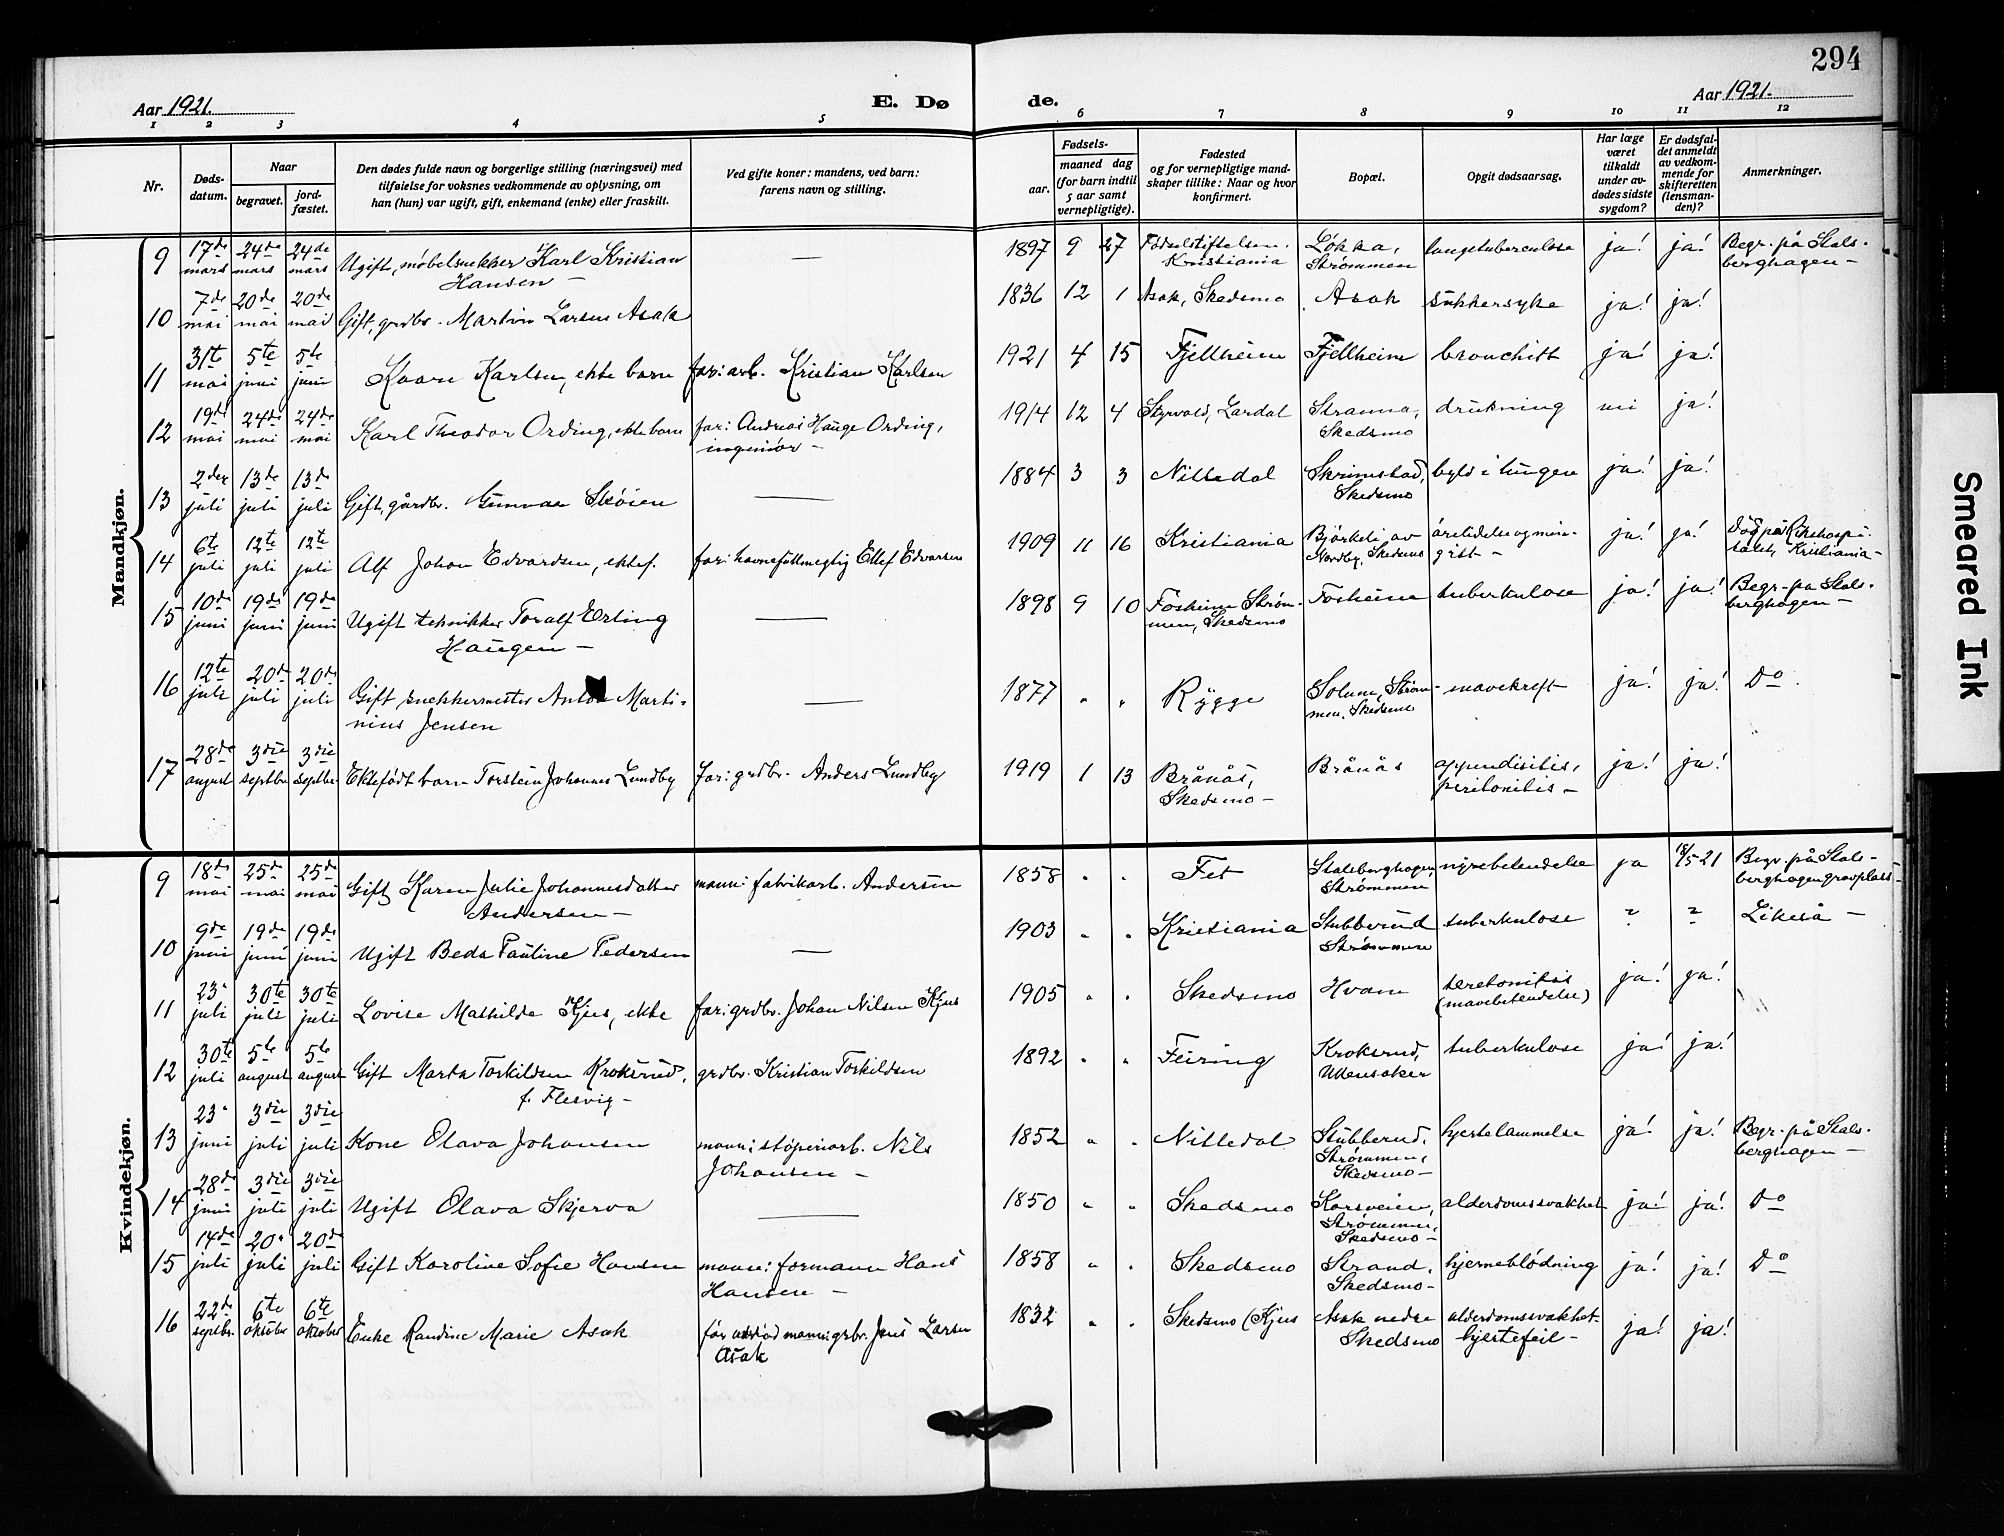 294
Aar 1921.
E. Dø
de.
Aar 1921.
1 2 3 4 5 6 7 8 9 10 11 12
Nr.
Døds-
datum.
Naar
begravet.
jord-
fæstet.
Den dødes fulde navn og borgerlige stilling (næringsvei) med
tilføielse for voksnes vedkommende av oplysning, om
han (hun) var ugift, gift, enkemand (enke) eller fraskilt.
Ved gifte koner: mandens, ved barn:
farens navn og stilling.
Fødsels-
aar.
maaned dag
(for barn indtil
5 aar samt
vernepligtige).
Fødested
og for vernepligtige mand-
skaper tillike: Naar og hvor
konfirmert.
Bopæl.
Opgit dødsaarsag.
Har læge
været
tilkaldt
under av-
dødes sidste
sygdom?
Er dødsfal-
det anmeldt
av vedkom-
mende for
skifteretten
(lensman-
den)?
Anmerkninger.
Mandkjøn.
9 17de mars 24de mars 24de mars Ugift, møbelsnekker Karl Kristian
Hansen —
— 1897 9 27 Fødselstiftelsen.
Kristiania
Løkka,
Strømmen
lungetuberculose ja! ja! Begr. på Stals-
berghagen —
10 7de mai 20de mai 20de mai Gift, grdbr. Martin Larsen Asak 1836 12 1 Asak, Skedsmo Asak sukkersyke ja! ja!
11 31te mai 5te juni 5te juni Kaare Karlsen, ekte barn far: arb. Kristian Karlsen 1921 4 15 Fjellheim Fjellheim bronchitt ja! ja!
12 19de mai 24de mai 24de mai Karl Theodor Ording, ekte barn far: Andreas Hauge Ording,
ingeniør —
1914 12 4 Styrvold, Lardal Stranna,
Skedsmo
drukning nei ja!
13 2den juli 13de juli 13de juli Gift, gårdbr. Gunnar Skøien — 1884 3 3 Nittedal Skrimstad,
Skedsmo
byld i lungen ja! ja!
14 6te juli 12te juli 12te juli Alf Johan Edvardsen, ektef. far: havnefullmegtig Ellef Edvarsen 1909 11 16 Kristiania Bjørkeli av
Nordby, Skedsmo
ja! ja! Død på Rikshospi-
talet, Kristiania —
15 10de juni 19de juni 19de juni Ugift teknikker Toralf Erling
Haugen —
— 1898 9 10 Fosheim Strøm-
men, Skedsmo
Fosheim tuberkulose ja! ja! Begr. på Stals-
berghagen —
16 12te juli 20de juli 20de juli Gift snekkermester Anton Marti-
nius Jensen
— 1877 " " Rygge Solum, Strøm-
men, Skedsmo
mavekreft ja! ja! Do
17 28de august 3die septbr 3die septbr Ektefødt barn Torstein Johannes Lundby far: grdbr. Anders Lundby 1919 1 13 Brånås,
Skedsmo —
Brånås appendisitis,
peritonitis —
ja! ja!
Kvindekjøn.
9 18de mai 25de mai 25de mai Gift Karen Julie Johannesdatter
Andersen —
mann: fabrikarb. Andersen 1858 " " Fet Stalsberghagen,
Strømmen
nyrebetendelse ja 18/5 21 Begr. på Stals-
berghagen gravplass —
10 9de juni 19de juni 19de juni Ugift Beda Pauline Pedersen — 1903 " " Kristiania Stubberud
Strømmen
tuberkulose ? ? Likeså —
11 23. juli 30te juli 30te juli Lovise Mathilde Kjus, ekte far: grdbr. Johan Nilsen Kjus 1905 " " Skedsmo Hvam
(mavebetendelse)
ja! ja!
12 30te juli 5te august 5te august Gift Marta Torkildsen Kroksrud,
f. Flesvig —
grdbr. Kristian Torkildsen 1892 " " Feiring Kroksrud,
Ullensaker
tuberkulose ja! ja!
13 23. juni 3die juli 3die juli Kone Olava Johansen mann: støperiarb. Nils
Johansen —
1852 " " Nittedal Stubberud,
Strømmen,
Skedsmo —
hjertelammelse ja! ja! Begr. på Stals-
berghagen —
14 28de juni 3die juli 3die juli Ugift Olava Skjerva — 1850 " " Skedsmo Korsveien,
Strømmen,
Skedsmo —
alderdomssvakhet ja! ja! Do
15 14de juli 20. juli 20de juli Gift Karoline Sofie Hansen mann: formann Hans
Hansen —
1858 " " Skedsmo Strand,
Skedsmo —
hjerneblødning ja! ja! Do
16 22de septbr. 6te oktober 6te oktober Enke Randine Marie Asak før avdød mann: grbr. Jens Larsen
Asak
1832 " " Skedsmo (Kjus Asak nedre
Skedsmo
alderdomssvakhet
hjertefeil —
ja! ja!
Smeared Ink